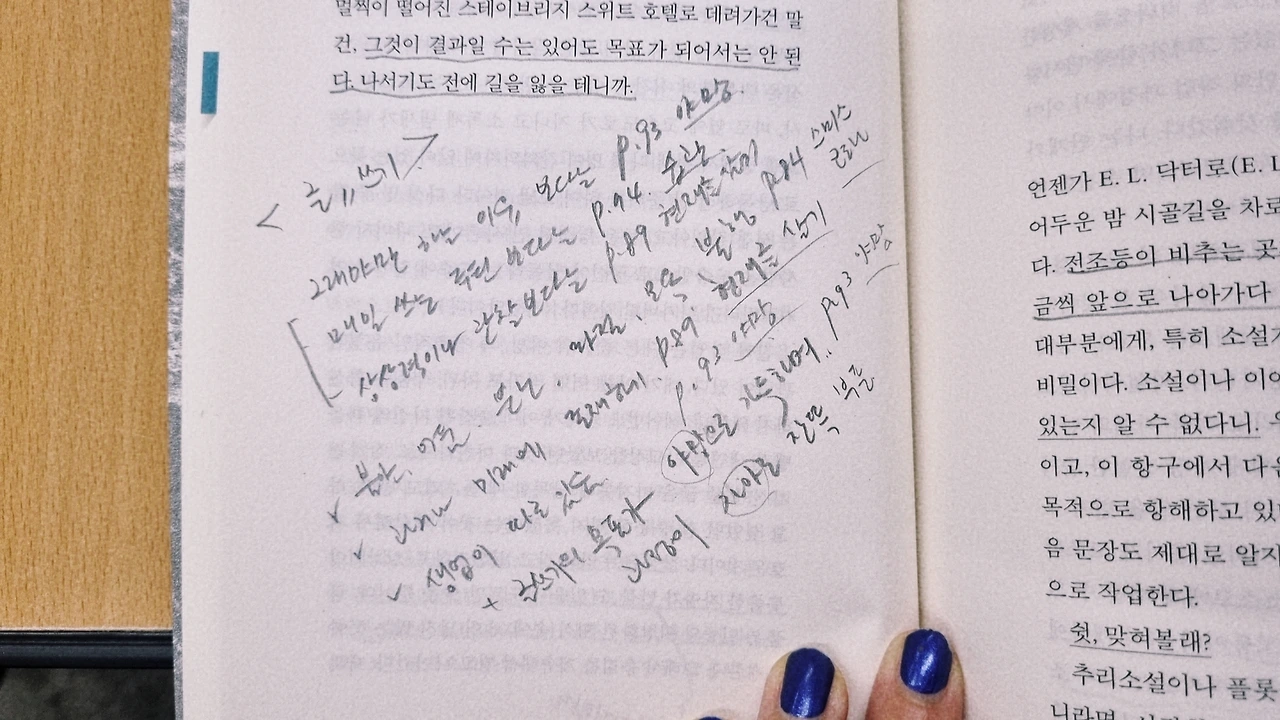 멀찍이 떨어진 스테이브리지 스위트 호텔로 데려가건 말
건, 그것이 결과일 수는 있어도 목표가 되어서는 안 된
다. 나서기도 전에 길을 잃을 테니까.
< 글, 쓰기 >
그래야만 하는 이유 보다는 p.93 야망.
매일 쓰는 루틴 보다는 p.94 습관.
상상력이나 관찰보다는 p.89 현재를 살기 p.84 스미스
불안. 어둠 불신 좌절. 모욕 불능
나는 미래에 존재하네 p.89 현재를 살기
생업이 따로 있는 p.93 야망
글쓰기의 목표가 야망으로 가득하며.. p.93 야망
나뿐이 자아는 잔뜩 부푼
언젠가 E. L. 닥터로(E. L
어두운 밤 시골길을 차로
다. 전조등이 비추는 곳
금씩 앞으로 나아가다
대부분에게, 특히 소설가
비밀이다. 소설이나 이야
있는지 알 수 없다니.
이고, 이 항구에서 다음
목적으로 항해하고 있
음 문장도 제대로 알지
으로 작업한다.
쉿, 맞혀볼래?
추리소설이나 플롯
니라면